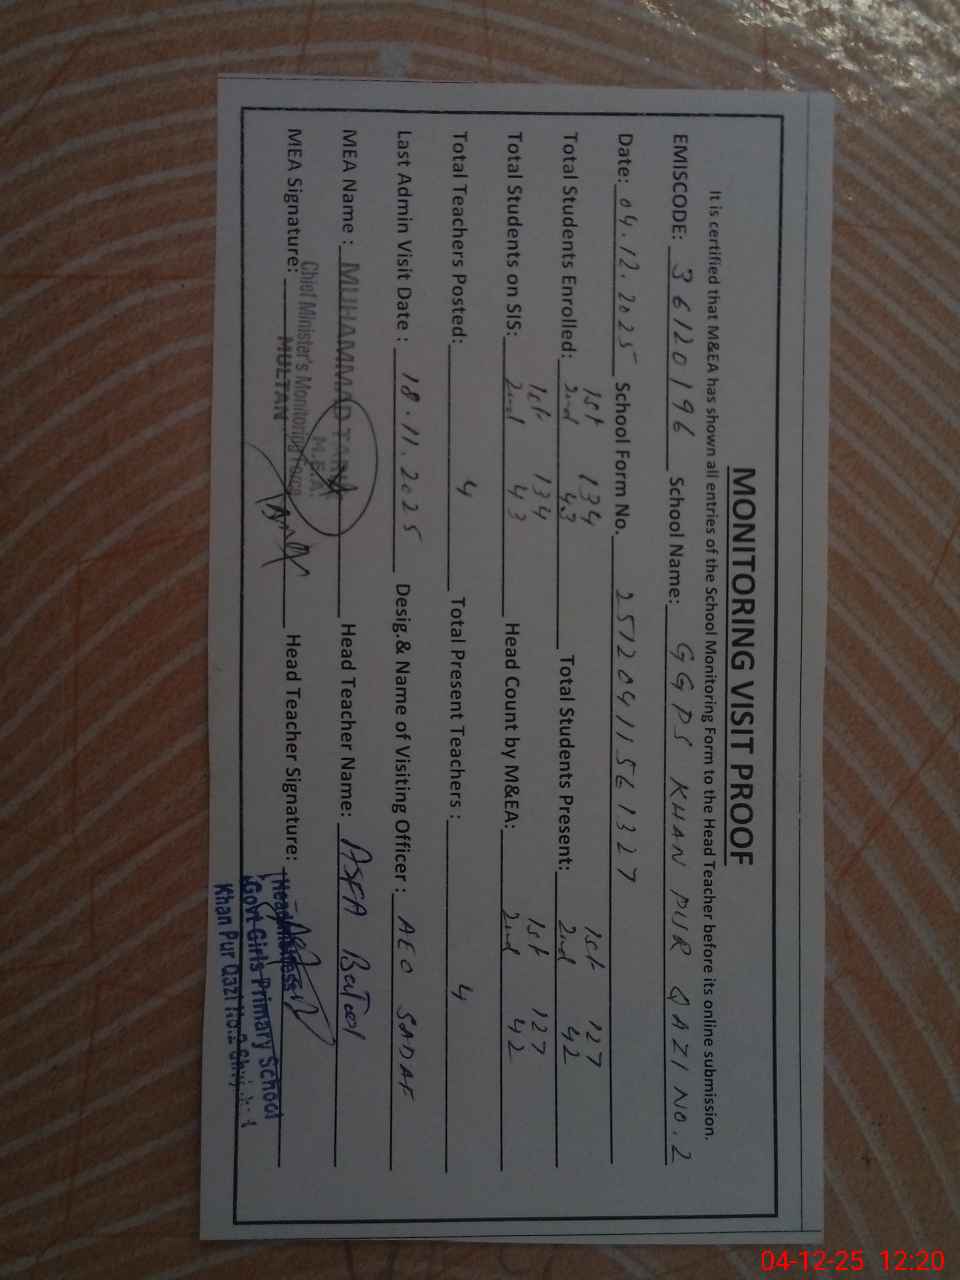 MONITORING VISIT PROOF
It is certified that M&EA has shown all entries of the School Monitoring Form to the Head Teacher before its online submission.
EMISCODE: 36120196 School Name: GGPS KHAN PUR QAZI NO.2
Date: 04.12.2025 School Form No. 25120411561327
Total Students Enrolled: 1st 134 2nd 43 Total Students Present: 1st 127 2nd 42
Total Students on SIS: 1st 134 2nd 43 Head Count by M&EA: 1st 127 2nd 42
Total Teachers Posted: 4 Total Present Teachers : 4
Last Admin Visit Date : 18.11.2025 Desig.& Name of Visiting Officer : AEO SADAF
MEA Name : MUHAMMAD Head Teacher Name: ASFA Batool
M.E.A.
Chief Minister's Monitoring Force
MULTAN
MEA Signature: Head Teacher Signature:
Headmistress
Govt Girls Primary School
Khan Pur Qazi No.2
04-12-25 12:20